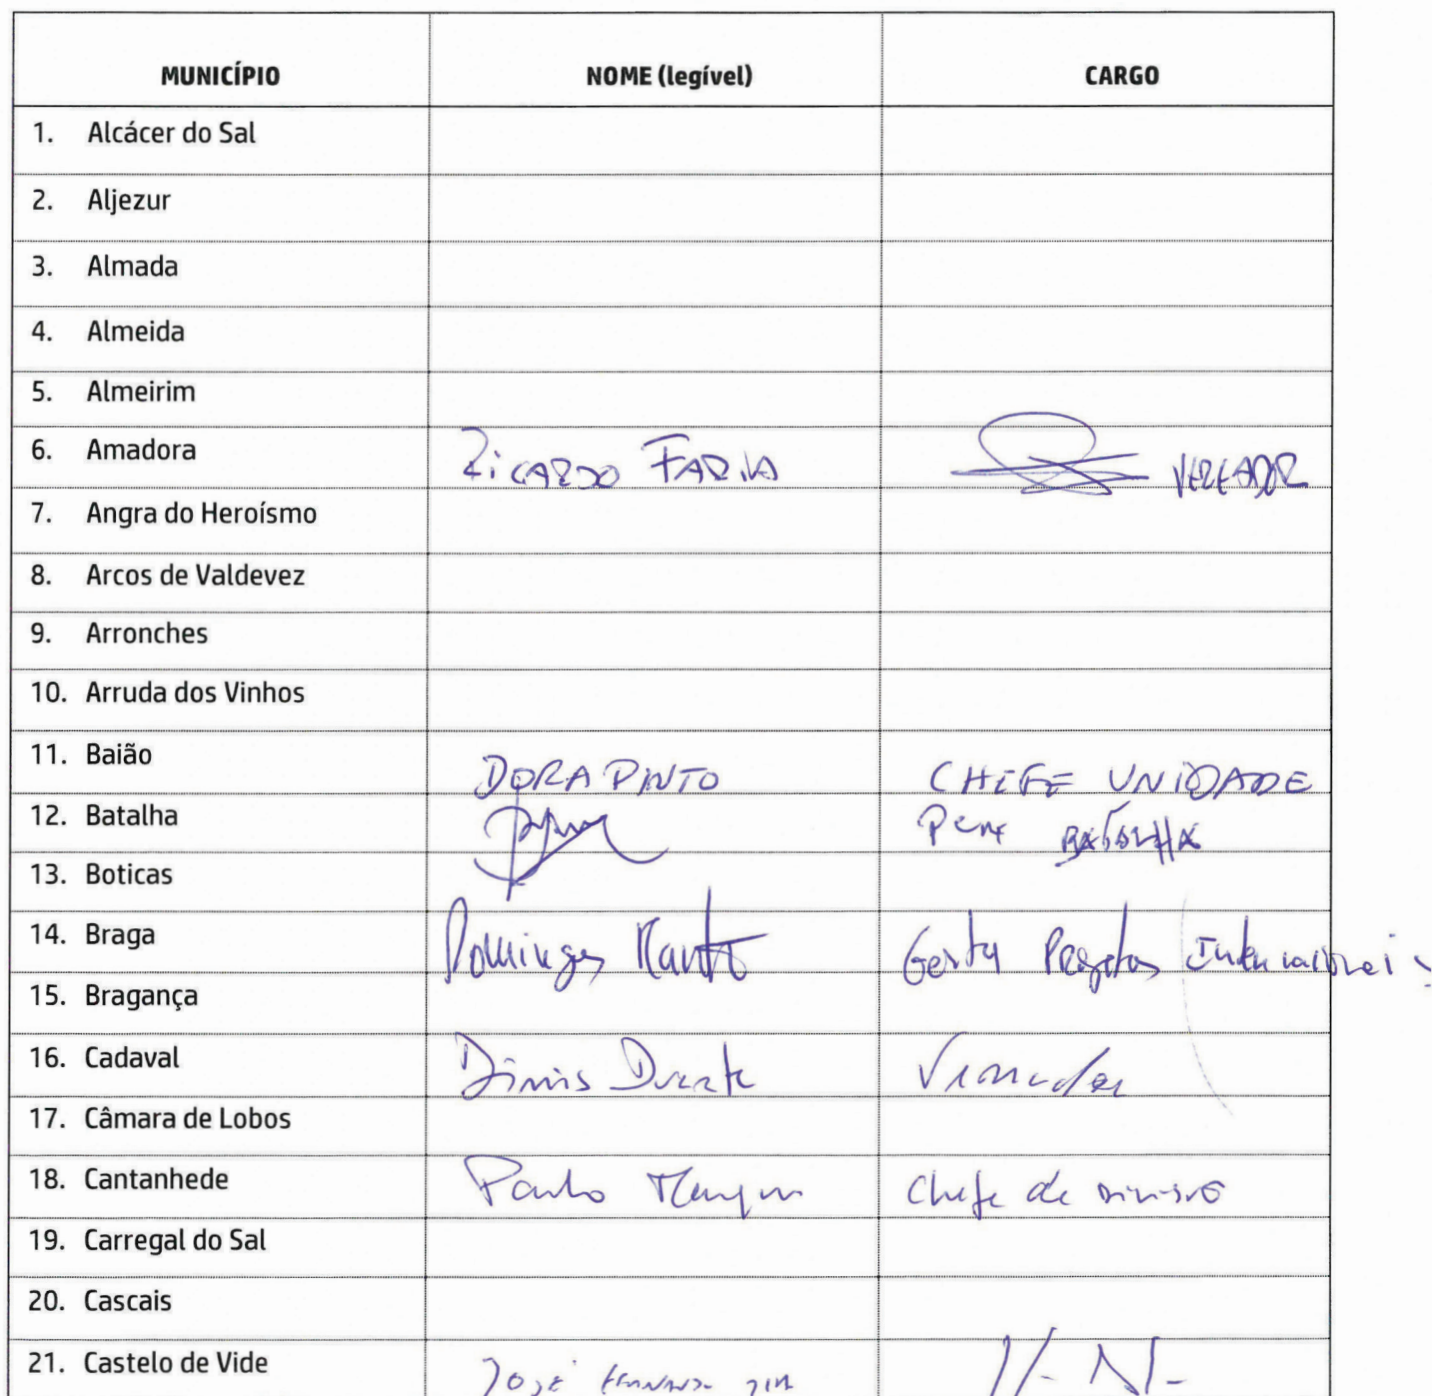 MUNICÍPIO NOME (legível) CARGO
1. Alcácer do Sal
2. Aljezur
3. Almada
4. Almeida
5. Almeirim
6. Amadora RICARDO FARIA VEREADOR
7. Angra do Heroísmo
8. Arcos de Valdevez
9. Arronches
10. Arruda dos Vinhos
11. Baião DORA PINTO CHEFE UNIDADE
12. Batalha BATALHA
13. Boticas
14. Braga Domingos Projetos Internacionais
15. Bragança
16. Cadaval Dinis Duarte Vereador
17. Câmara de Lobos
18. Cantanhede Paulo Chefe de Divisão
19. Carregal do Sal
20. Cascais
21. Castelo de Vide José